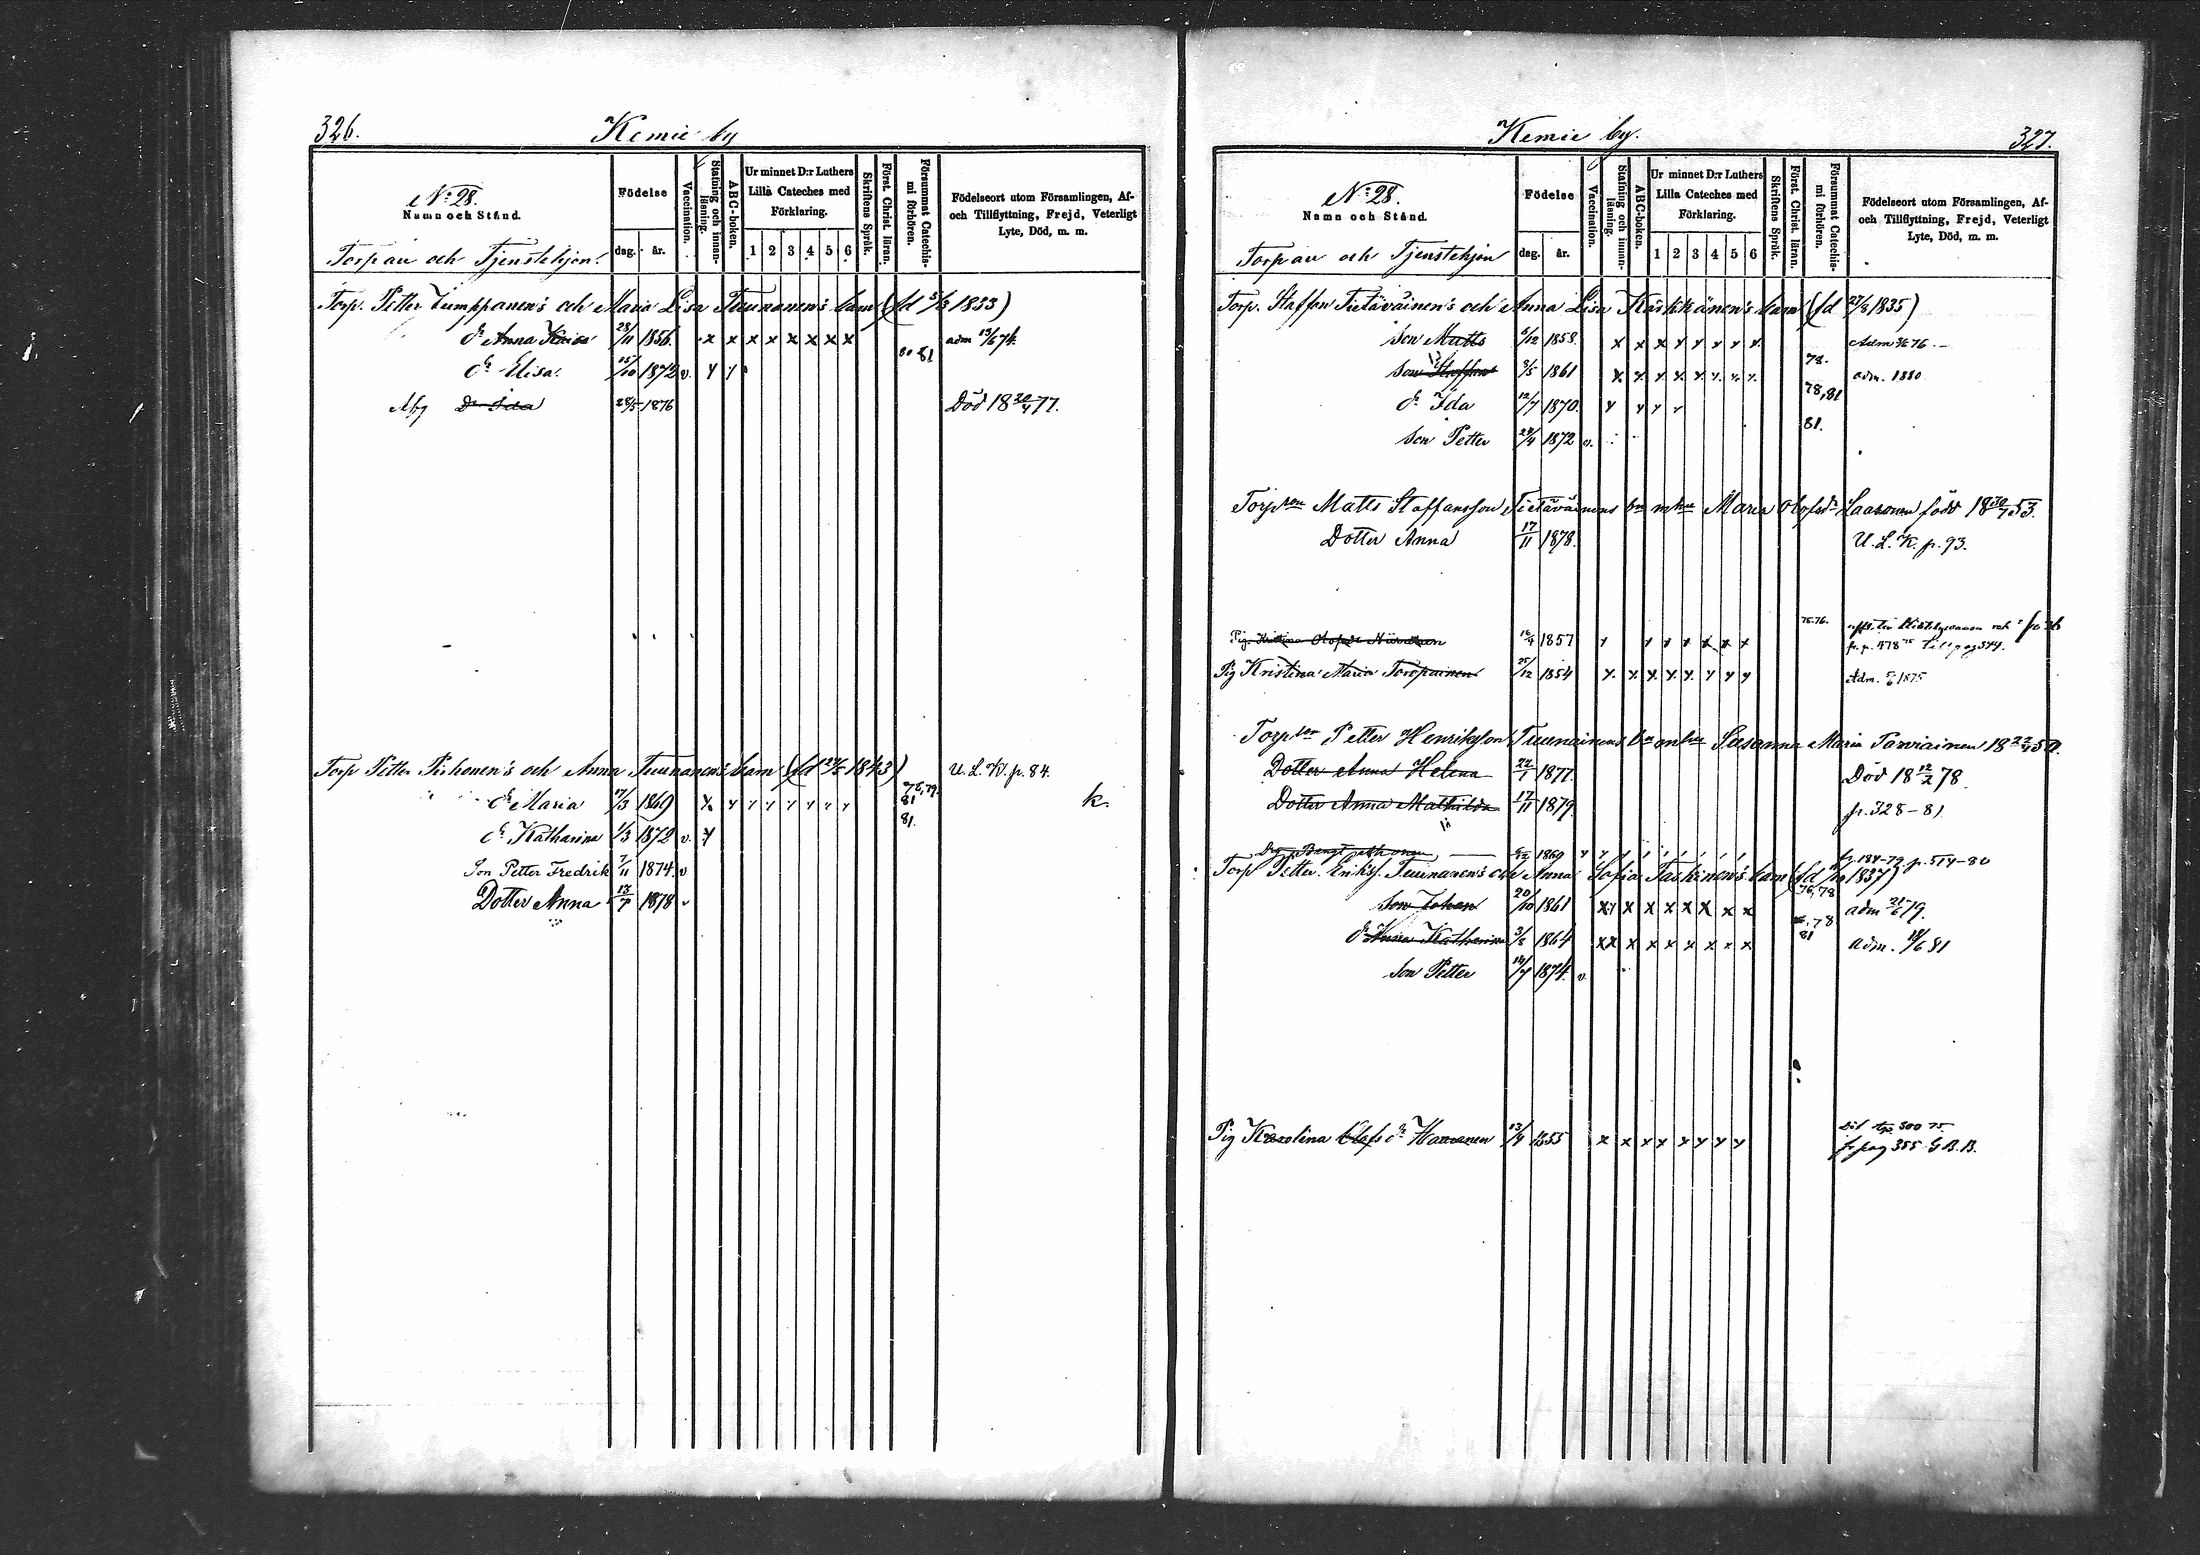 326.
Kemie by
No 28.
Namn och Stånd.
Torpare och Tjenstehjon.
Födelse
dag. år.
Vaccination.
Stafning och innanläsning.
ABC-boken.
Ur minnet D:r Luthers
Lilla Cateches med
Förklaring.
1 2 3 4 5 6
Skriftens Språk.
Först. Christ. läran.
Försummat Catechismi förhören.
Födelseort utom Församlingen, Af-
och Tillflyttning, Frejd, Veterligt
Lyte, Död, m. m.
Torp. Petter Tumppanen's och Maria Lisa Tuunanen's barn (fd 5/3 1833)
dr Anna Kaisa 28/11 1856. x x x x x x x x adm 13/6 74.
dr Elisa. 15/10 1872 v. 80 81
Afg Dr Ida 28/5 1876 Död 18 20/4 77.
Torp Petter Pirhonen's och Anna Tuunanen's barn (fd 24/5 1843) U. L. K. p. 84.
dr Maria 17/3 1869 78, 79. 81 k.
dr Katharina 1/3 1872 v. 81.
Son Petter Fredrik 7/11 1874. v
Dotter Anna 13/7 1878 v
Kemie by.
327.
No 28.
Namn och Stånd.
Torpare och Tjenstehjon
Födelse
dag. år.
Vaccination.
Stafning och innanläsning.
ABC-boken.
Ur minnet D:r Luthers
Lilla Cateches med
Förklaring.
1 2 3 4 5 6
Skriftens Språk.
Först. Christ. läran.
Försummat Catechismi förhören.
Födelseort utom Församlingen, Af-
och Tillflyttning, Frejd, Veterligt
Lyte, Död, m. m.
Torp. Staffan Tietäväinen's och Anna Lisa Kärkkänen's barn (fd 27/8 1835)
Son Matts 5/12 1858. x x x x x x x x Adm 76.
Son Staffan 3/5 1861 78. adm. 1880
dr Ida 12/7 1870. 78, 81
Son Petter 28/4 1872 v. 81.
Torpson Matts Staffansson Tietäväinens Maria Olofsdr Laasonen född 18 30/7 53.
Dotter Anna 17/11 1878. U. L. K. p. 93.
Pig. Kristina Olofsdr 16/4 1857 75. 76.
fr. p. 478 75 till pag 344.
Pig Kristina Maria Toropainen 25/12 1854 Adm. 1875
Torpson Petter Henriksson Tuunainens Susanna Maria Tarviainen
Dotter Anna Helena 22/1 1877. Död 18 12/2 78.
Dotter Anna Mathilda 17/11 1879. p. 328 - 81
Drg Bengt 1860 fr. 184-79. p. 514-80
Torp Petter Eriksf. Tuunanen's och Anna Sofia Taskinen's barn (fd 1837)
Son Johan 20/10 1861 76, 78 adm 21/6 79.
dr Anna Katharina 3/8 1864 78 81 adm. 18/6 81
Son Petter 16/7 1874. v.
Pig Karolina Olofsdr Hamanen 13/4 1855 300 75.
fr pag 355 G. B. B.